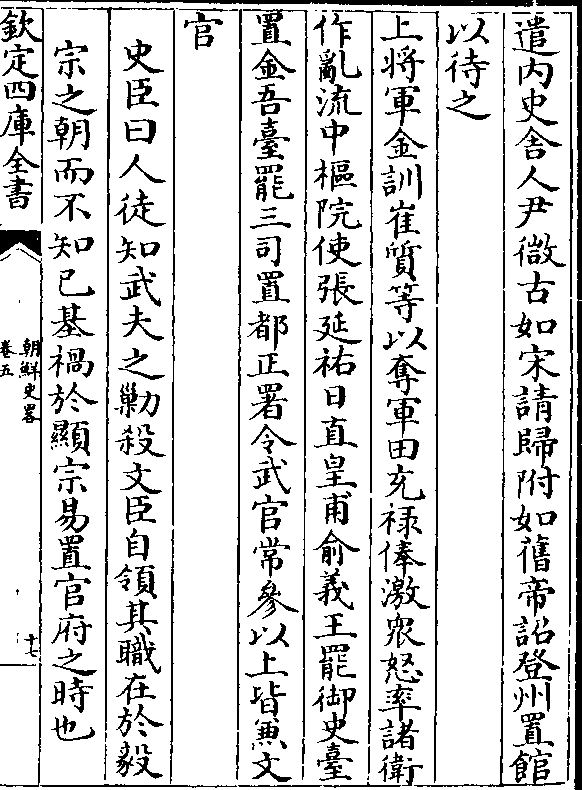 遣内史舎人尹徴古如宋請歸附如舊帝詔登州置館
以待之
上將軍金訓崔質等以奪軍田充禄俸激衆怒率諸衛
作亂流中樞院使張延祐日直皇甫俞義王罷御史臺
置金吾臺罷三司置都正署令武官常參以上皆兼文
官
史臣曰人徒知武夫之勦殺文臣自領其職在於毅
宗之朝而不知已基禍於顯宗易置官府之時也
欽定四庫全書
朝鮮史畧
卷五
十七